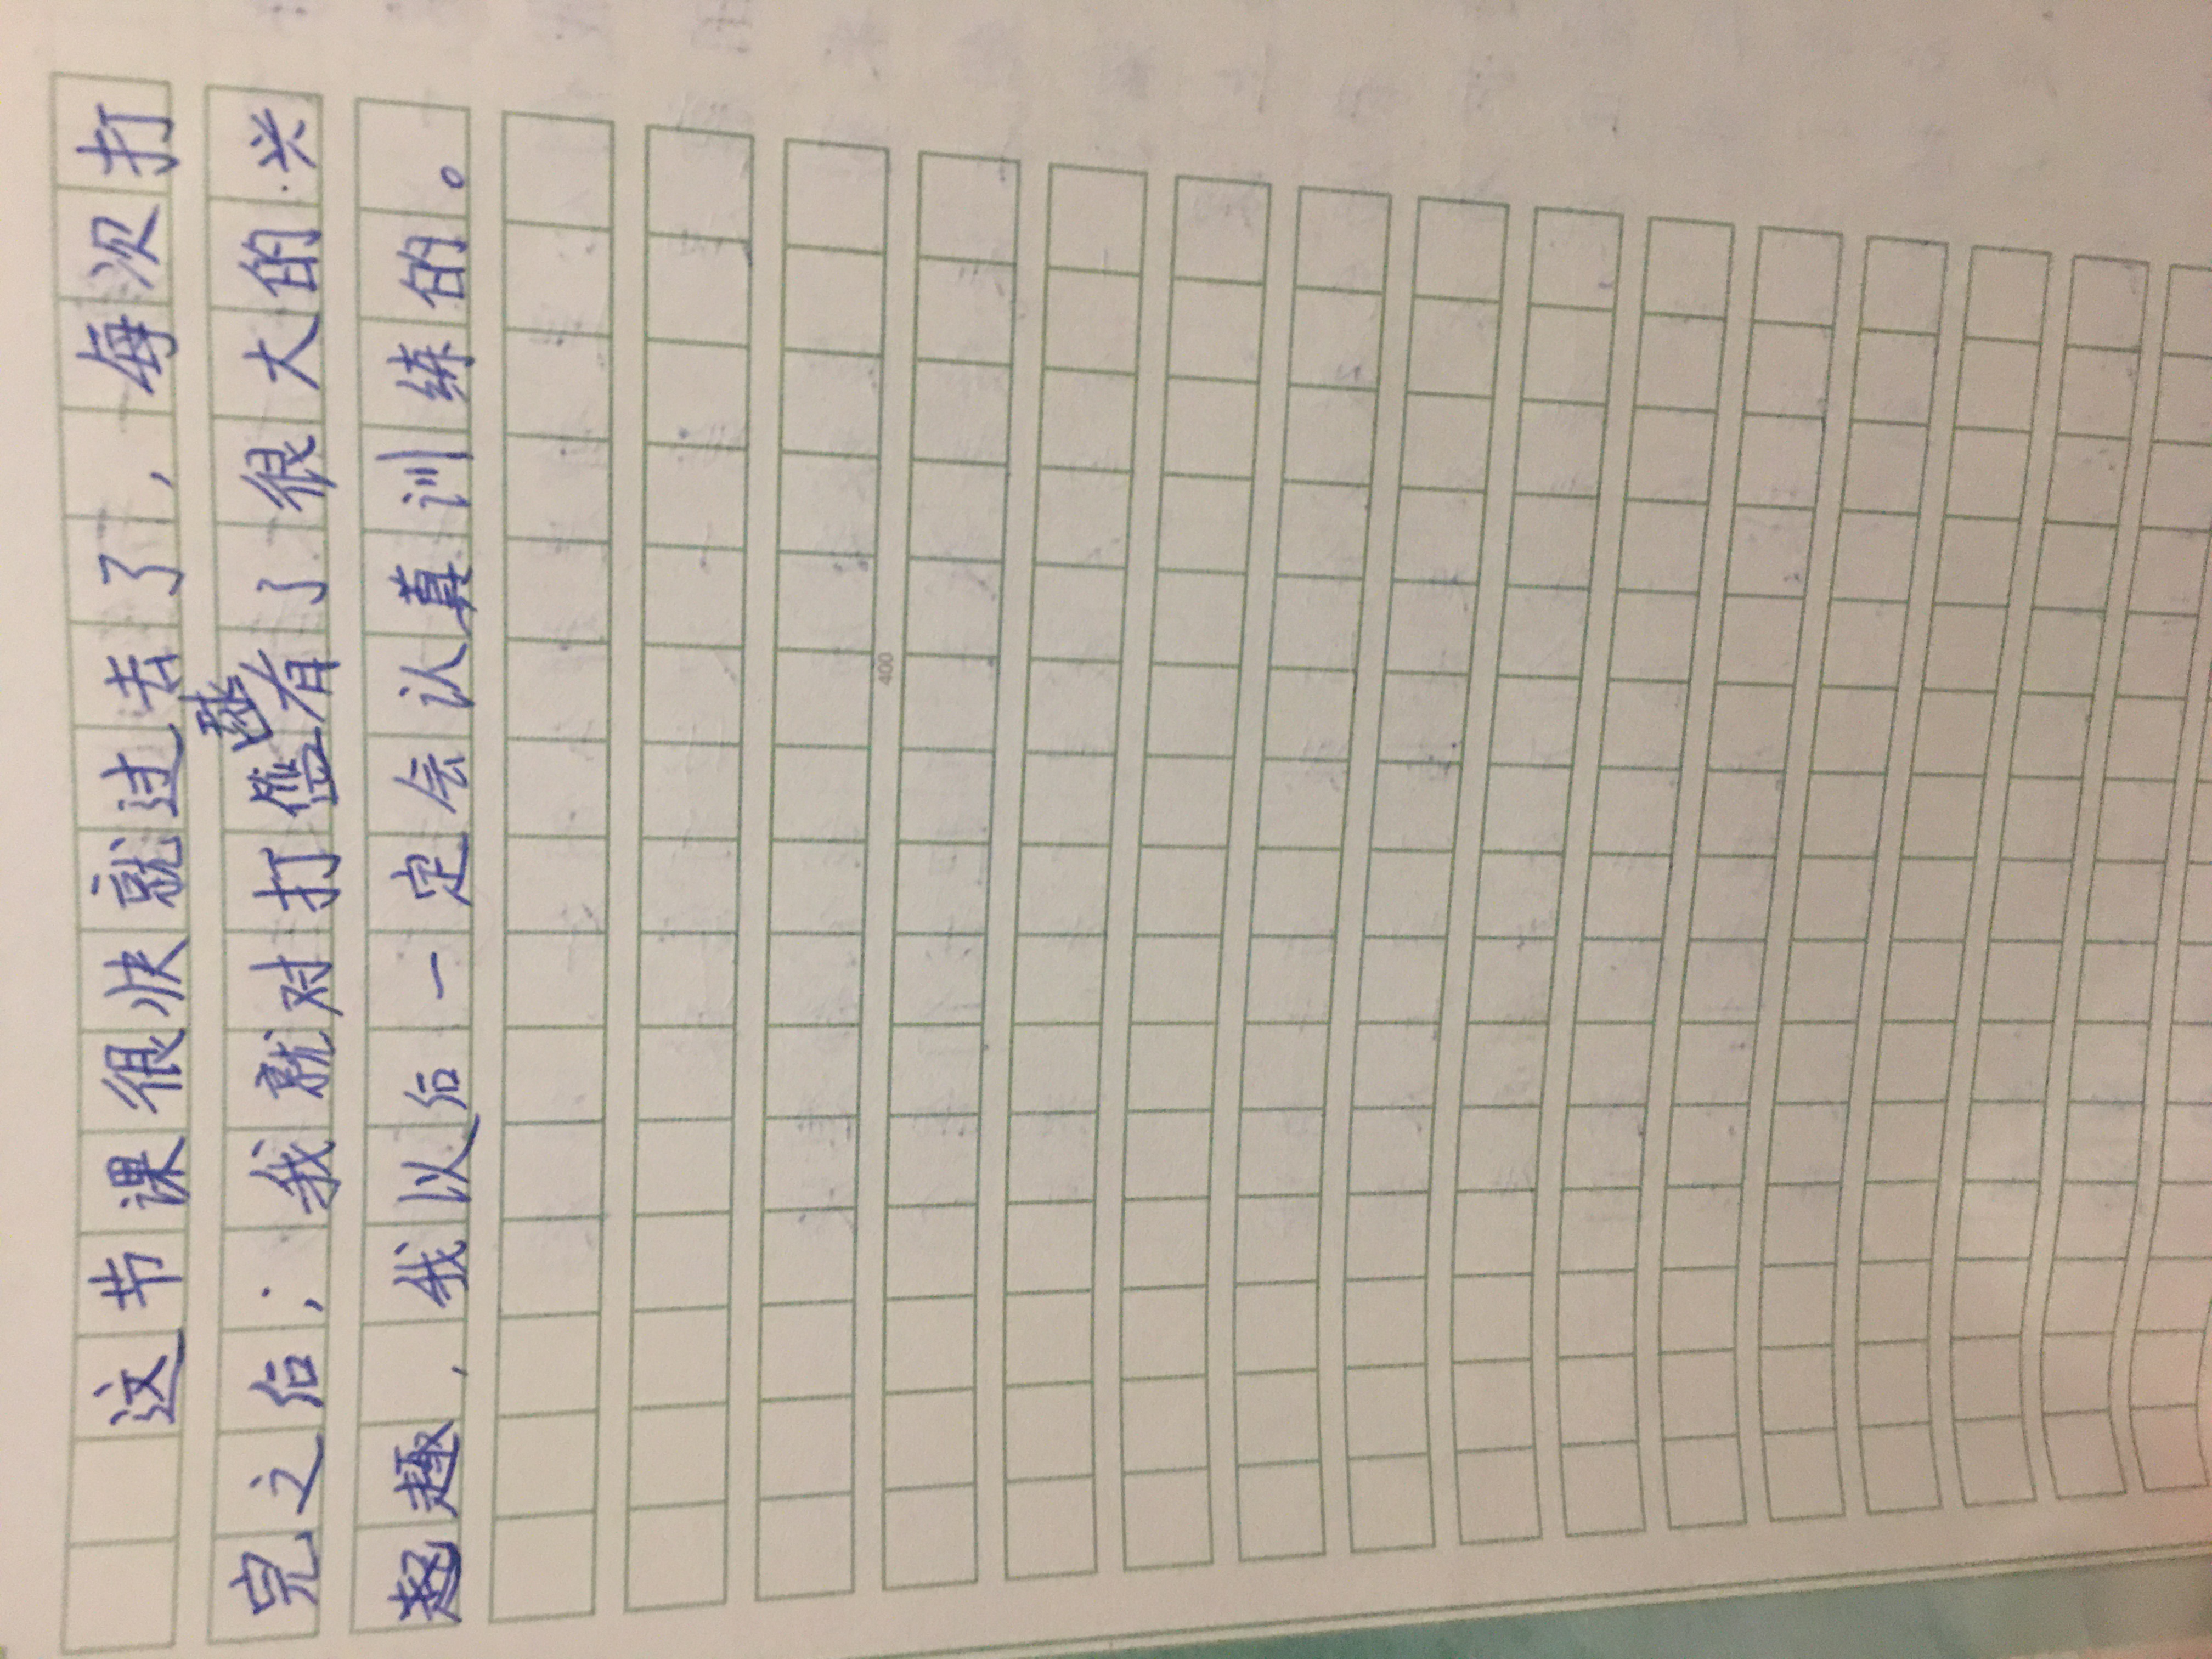 这节课很快就过去了，每次打
完之后，我就对打有了很大的兴
趣，我以后一定会认真训练的。
400